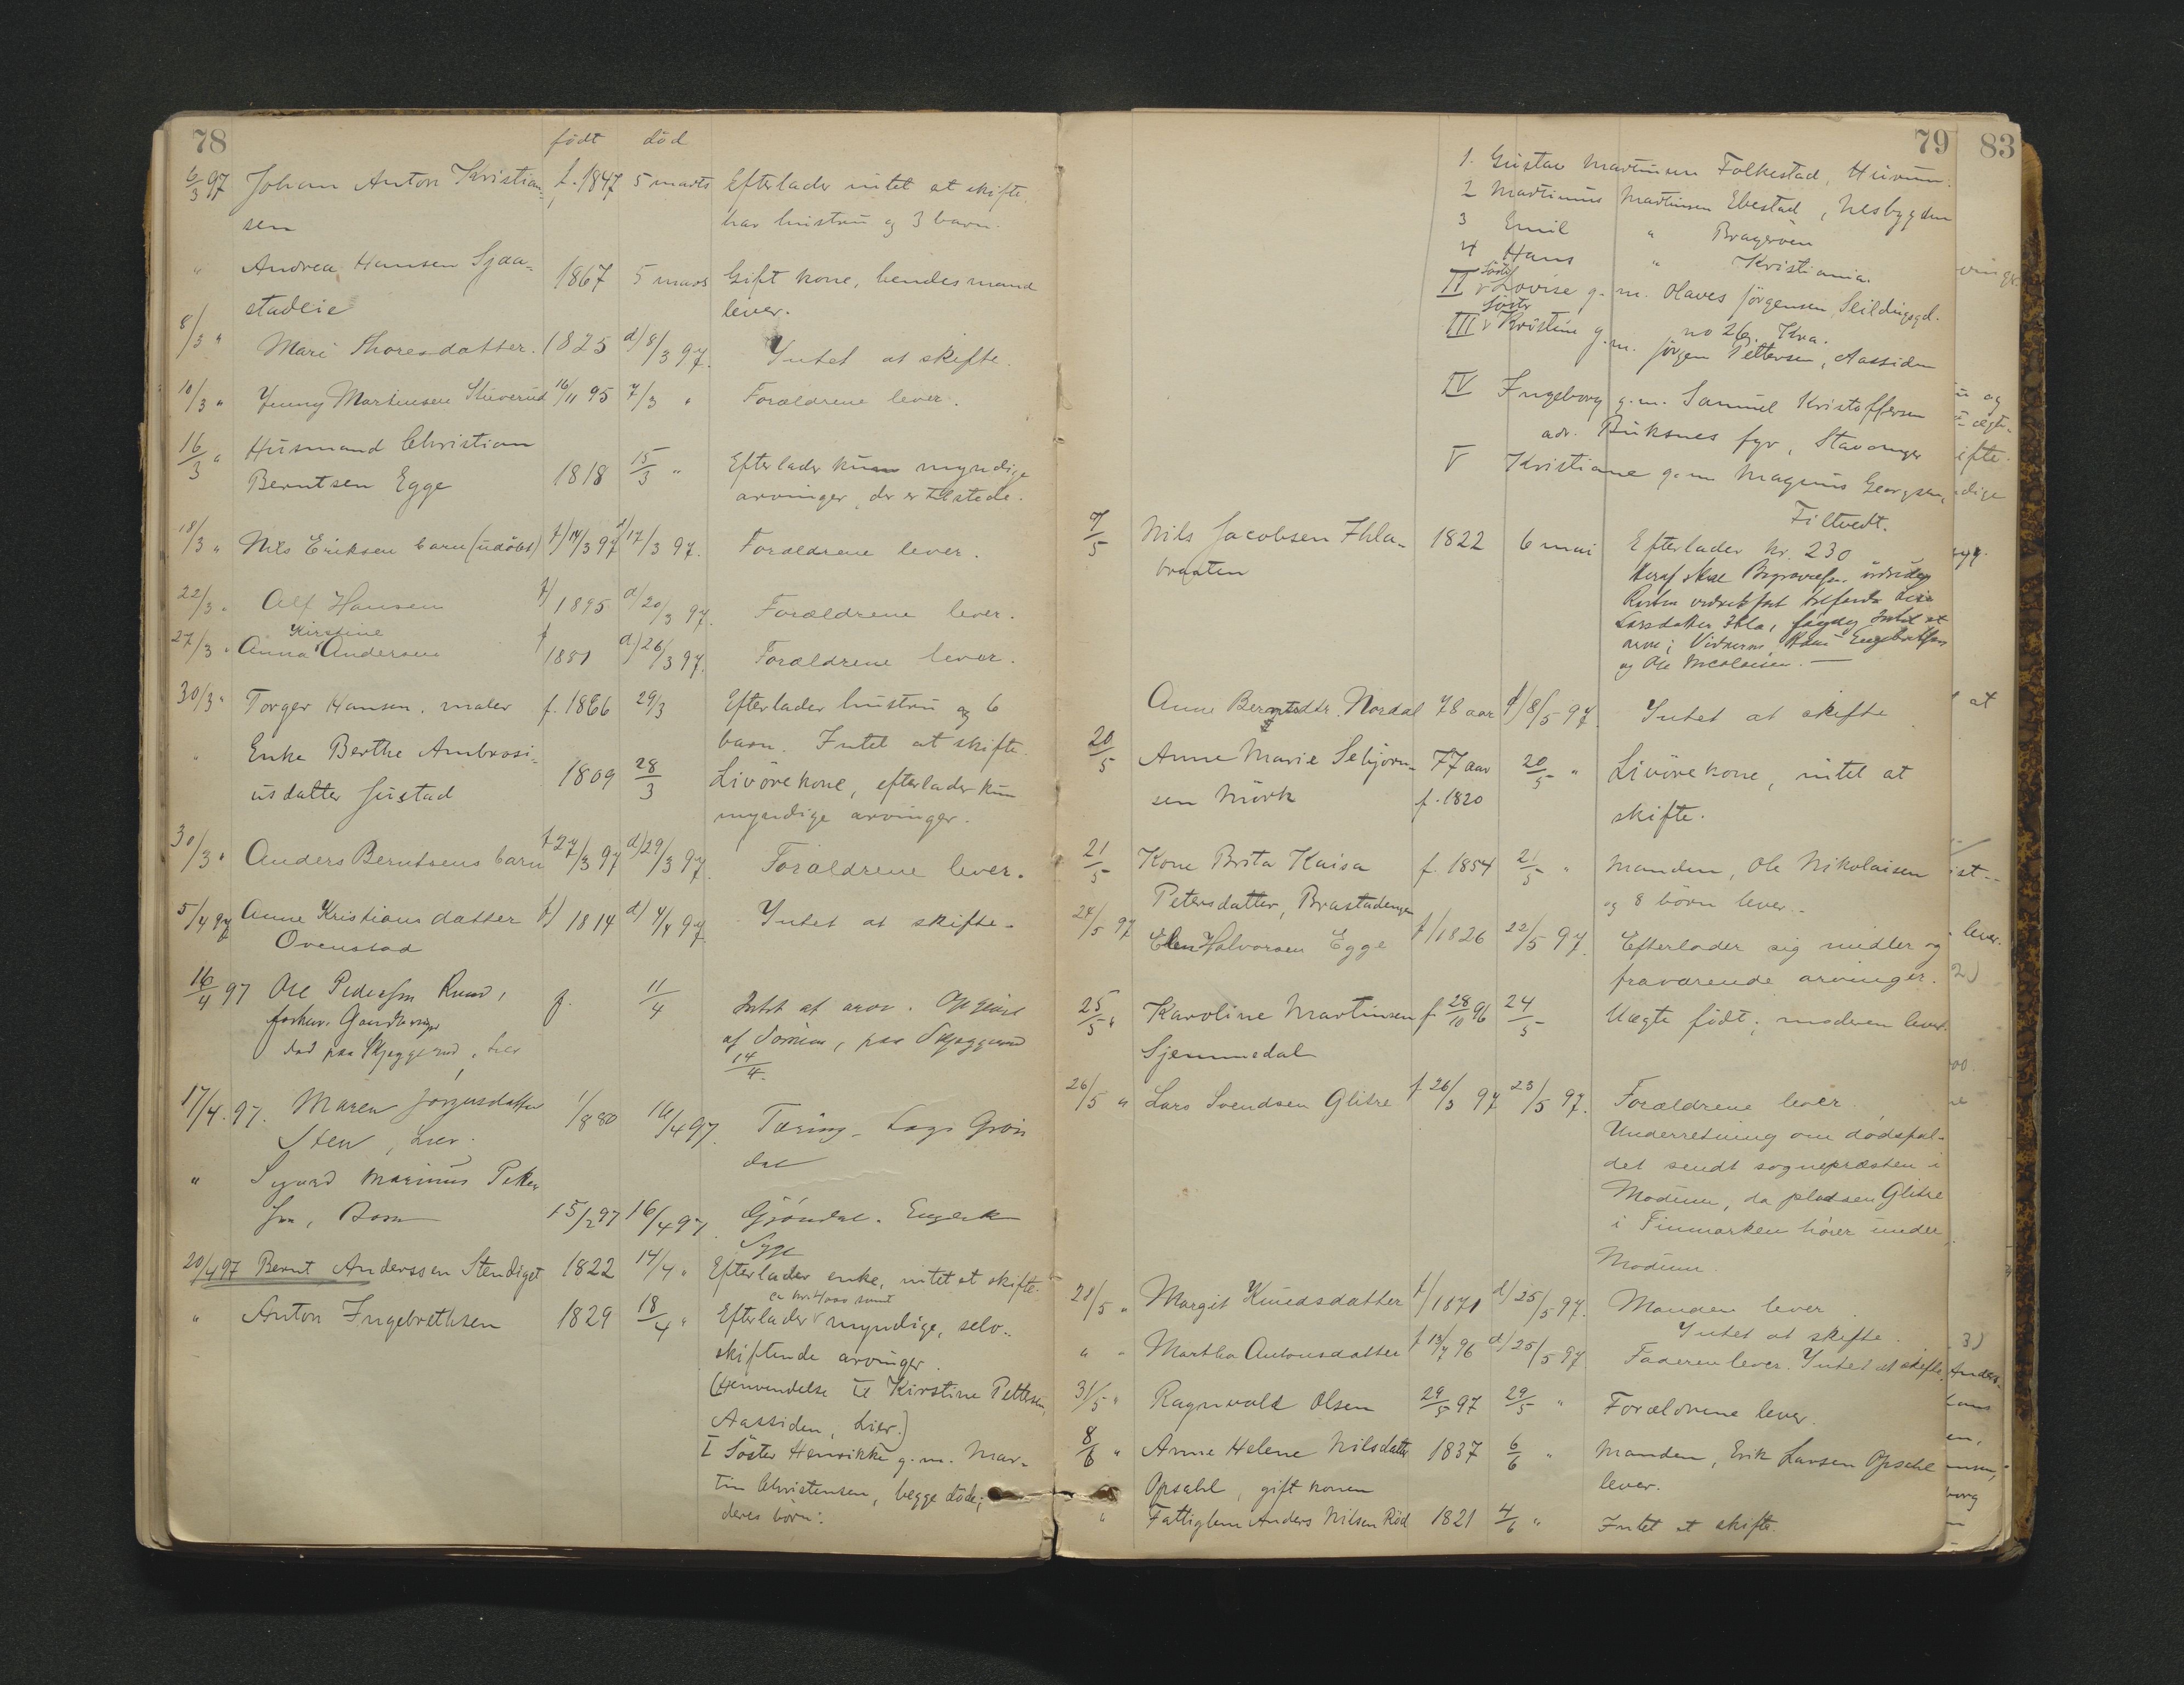 78
födt död
6/3 97 Johan Anton Kristian- f. 1847 5 marts Efterlader intet at skifte,
sen har hustru og 3 barn.
" Andrea Hansen Sjaa- 1867 5 mars Gift kone, hendes mand
stadeie lever.
8/3 " Mari Thoresdatter. 1825 d/8/3 97. Intet at skifte.
10/3 " Jenny Martinsen Stuverud 16/11 95 7/3 " Forældrene lever.
16/3 " Husmand Christian
Berntsen Egge 1818 15/3 " Efterlader kun myndige
arvinger, der er tilstede.
18/3 " Nils Eriksen barn (udöbt) f/14/3 97 d/17/3 97. Forældrene lever.
22/3 " Alf Hansen f/1895 d/20/3 97. Forældrene lever.
Kirstine
27/3 " Anna Andersen f 1881 d/26/3 97. Forældrene lever.
30/3 " Torger Hansen, maler f. 1866 29/3 Efterlader hustru og 6
barn. Intet at skifte.
" Enke Berthe Ambrosi-
usdatter Justad 1809 28/3 Livörekone, efterlader kun
myndige arvinger.
30/3 " Anders Berntsens barn f 27/3 97 d/29/3 97. Forældrene lever.
5/4 97 Anne Kristiansdatter f/1814 d/4/4 97. Intet at skifte.
Ovenstad
16/4 97 Ole Pedersen Ruud, f. 11/4 Intet at arve. Opgivet
forhen. Gaardbruger af Sönnen, paa Skjeggerud
död paa Skjeggerud, Lier 14/4.
17/4. 97. Maren Jörgensdatter 1/8 80 16/4 97. Tæring. Lage Grön
Sten, Lier. dal
" Sigurd Marinus Peter
sen, Barn 15/2 97 16/4 97. Gröndal. Engelsk
Syge
20/4 97 Bernt Anderssen Stendiget 1822 14/4 " Efterlader enke, intet at skifte.
ca kr. 4000 samt
" Anton Ingebrethsen 1829 18/4 " Efterlader myndige, selv-
skiftende arvinger.
(Henvendelse til Kirstine Pettersen,
Aassiden, Lier.)
I Söster Henrikke g. m. Mar-
tin Christensen, begge döde;
deres börn:
79
1. Gustav Martinsen Folkestad, Hurum.
2 Martinius Martinsen Ebestad, Nesbygden
3 Emil " Brageröen
4 Hans " Kristiania.
Söster
II Lovise g. m. Olaves Jörgensen, Seildugsgd.
no 26. Kra.
Söster
III Kristine g. m. Jörgen Pettersen, Aassiden
IV Ingeborg g. m. Samuel Kristoffersen
adr. Buksnes fyr, Stavanger
V Kristiane g. m. Magnus Georgsen,
Filtvedt.
7/5 Nils Jacobsen Ihla- 1822 6 mai Efterlader kr. 230
braaten Heraf skal Begravelsen udredes
Larsdatter Ihla,
og Ole Nicolaisen. —
Anne Berntsdtr. Nordal 78 aar d/8/5 97. Intet at skifte
20/5 Anne Marie Sebjörn- 77 aar 20/5 " Livörekone, intet at
sen Mörk f. 1820 skifte.
21/5 Kone Brita Kaisa f. 1854 21/5 " Manden, Ole Nikolaisen
Petersdatter, Brastadengen og 8 börn lever.
24/5 97 Elen Halvorsen Egge f/1826 22/5 97. Efterlader sig midler og
fraværende arvinger.
25/5 " Karoline Martinsen f. 28/10 96 24/5 Uægte födt; moderen lever.
Sjemmedal
26/5 " Lars Svendsen Glitre f. 26/3 97 23/5 97. Forældrene lever.
Underretning om dödsfal-
det sendt sognepræsten i
Modum, da pladsen Glitre
i Finmarken hörer under
Modum.
28/5 " Margit Knudsdatter f/1871 d/25/5 97. Manden lever.
Intet at skifte.
" " Martha Antonsdatter f 13/7 96 d/25/5 97 Faderen lever. Intet at skifte.
31/5 " Ragnvald Olsen 29/5 97 29/5 " Forældrene lever.
8/6 " Anne Helene Nilsdatter 1837 6/6 " Manden, Erik Larsen Opsahl
Opsahl, gift konen lever.
" Fattiglem Anders Nilsen Röd 1821 4/6 " Intet at skifte.
83